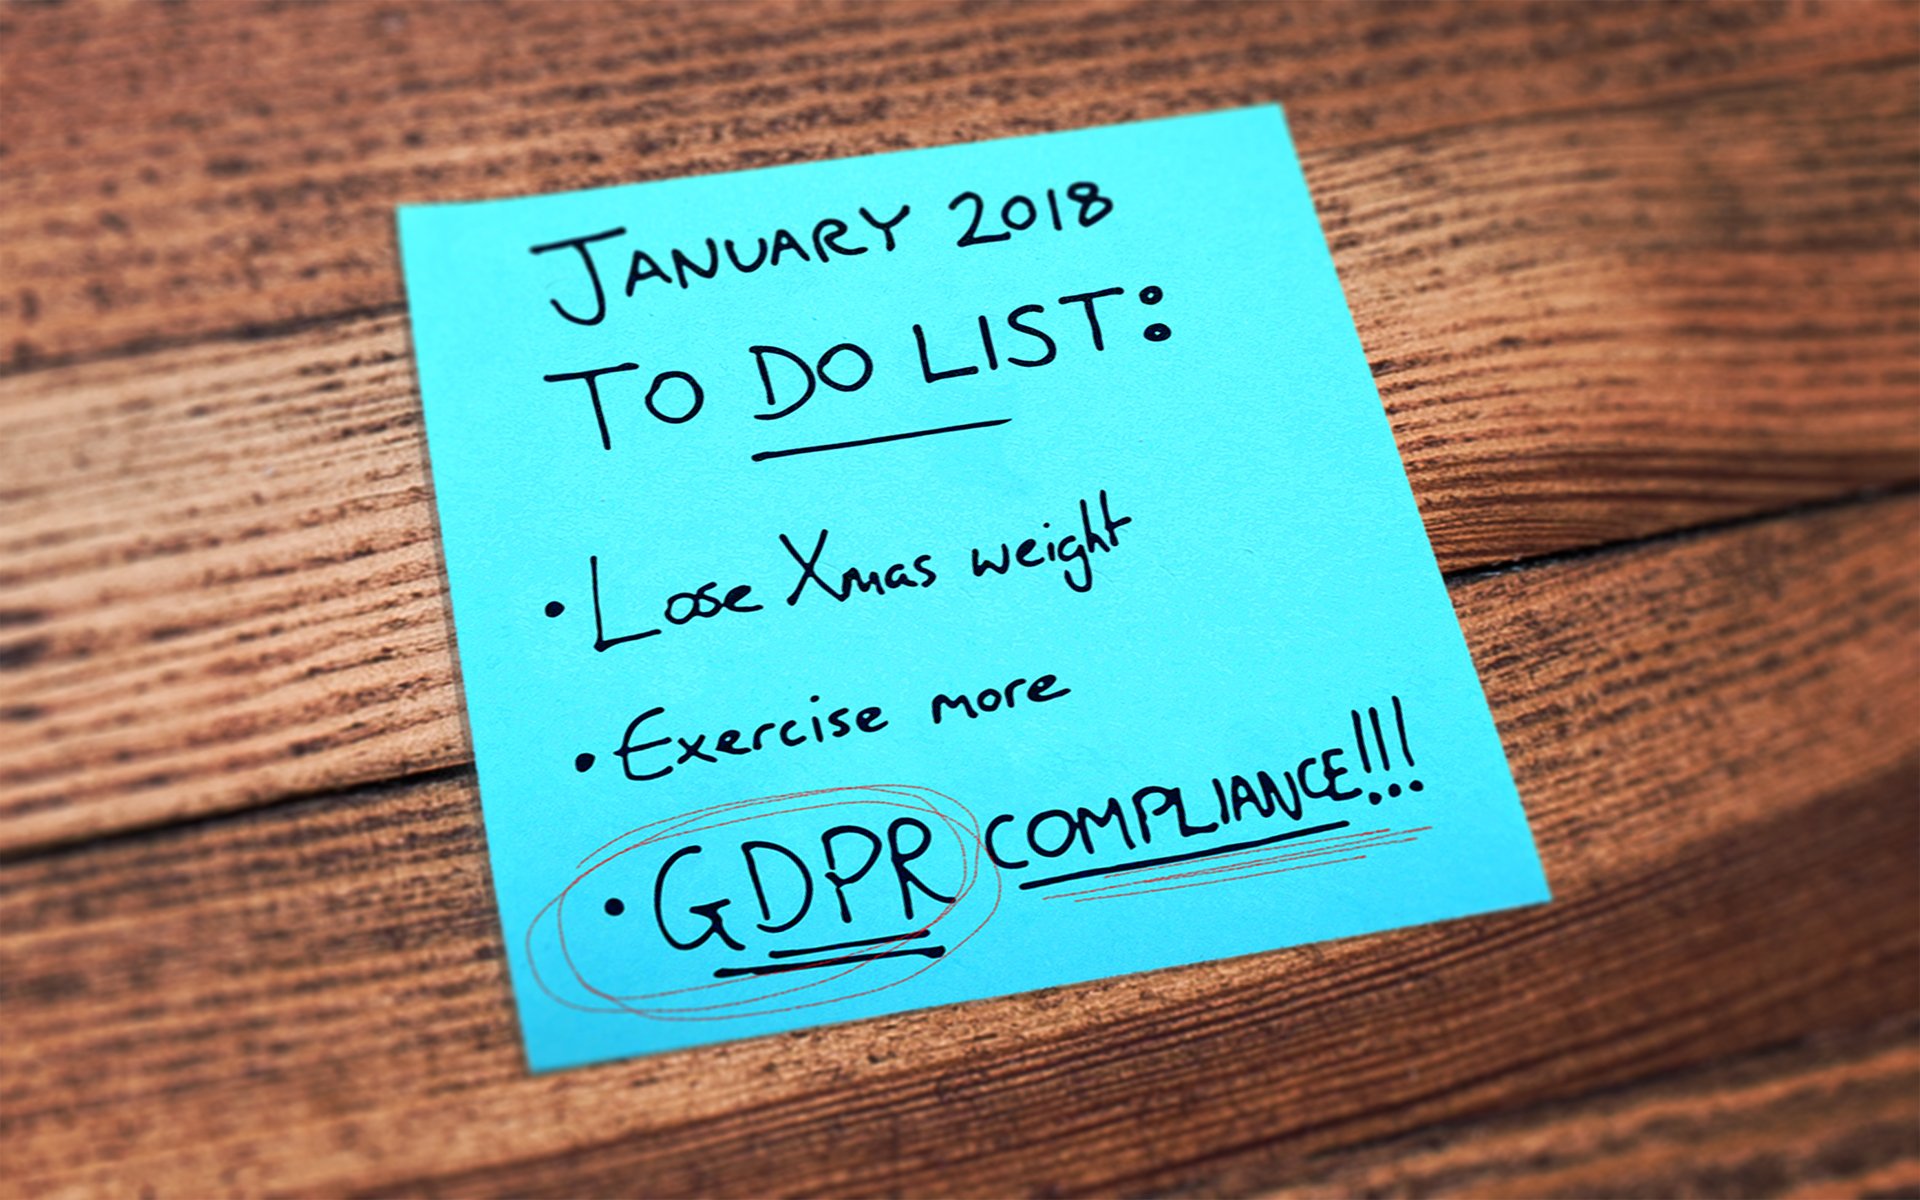 JANUARY 2018
TO DO LIST:
• Lose Xmas weight
• Exercise more
• GDPR COMPLIANCE!!!